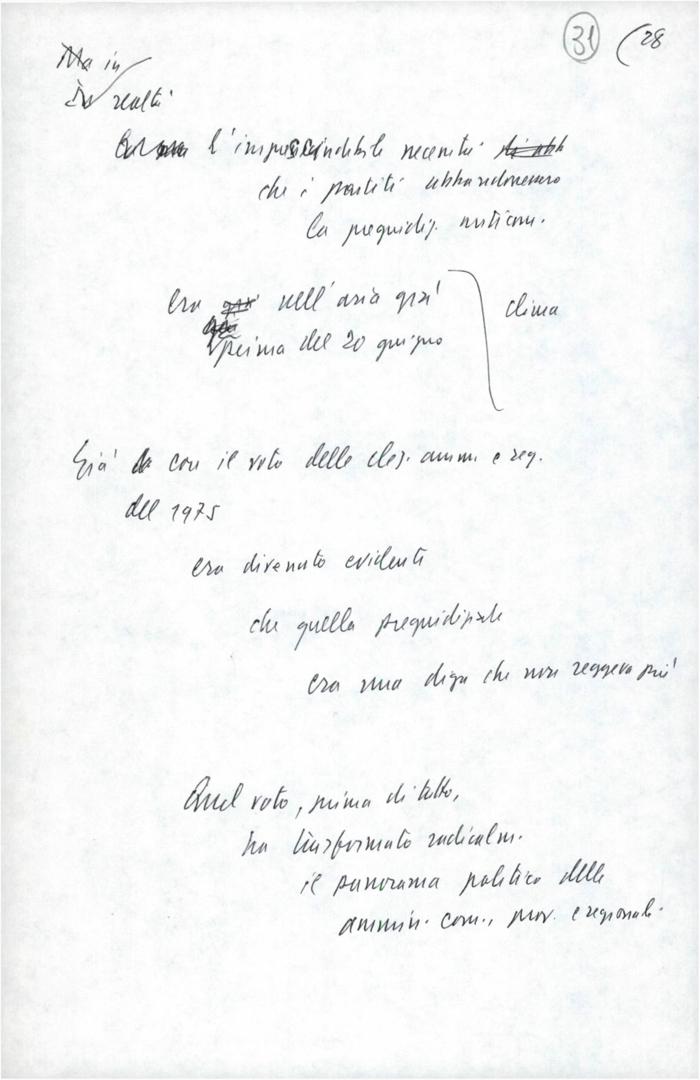 31 (28
Ma in
In realtà
l'imprescindibile necessità
che i partiti abbandonassero
la pregiudiz. anticom.
era nell'aria già clima
prima del 20 giugno
Già con il voto delle elez. ammi. e reg.
del 1975
era divenuto evidente
che quella pregiudiziale
era una diga che non reggeva più
Quel voto, prima di tutto,
ha trasformato radicalm.
il panorama politico delle
ammin. com., prov. e regionali.